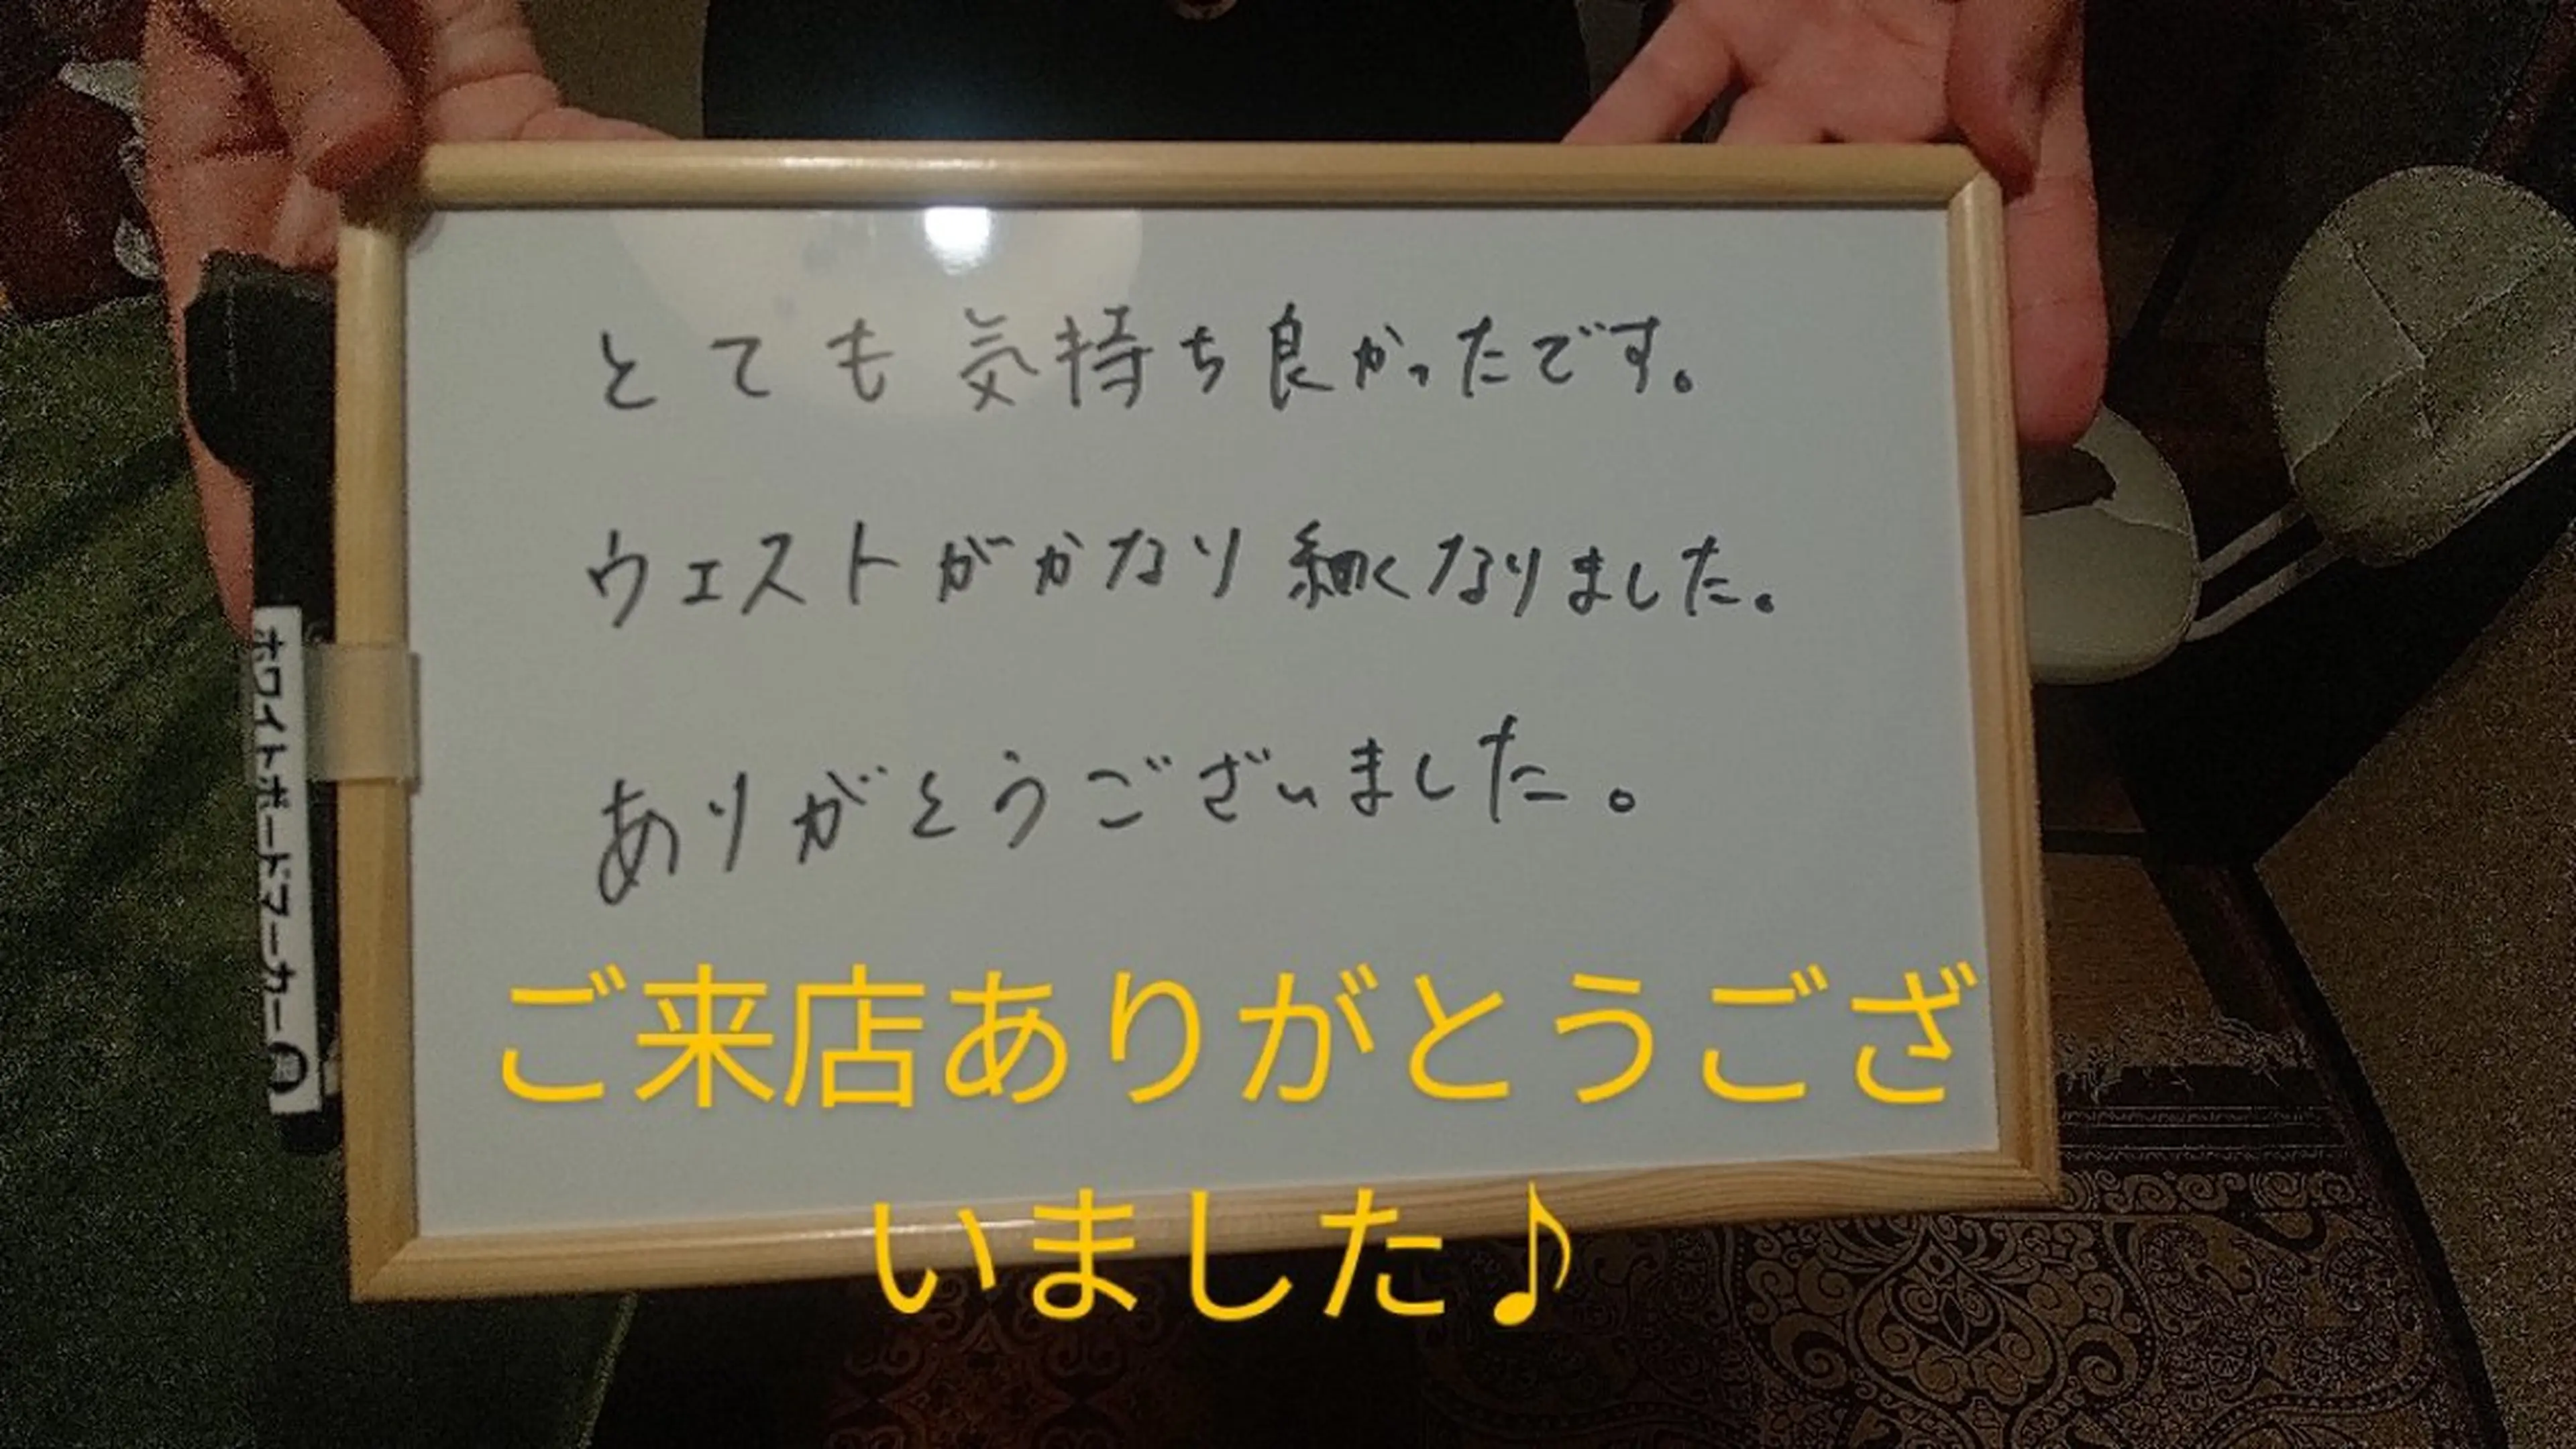 とても気持ち良かったです。
ウエストがかなり細くなりました。
ありがとうございました。
ご来店ありがとうござ
いました♪
ホワイトボードマーカー